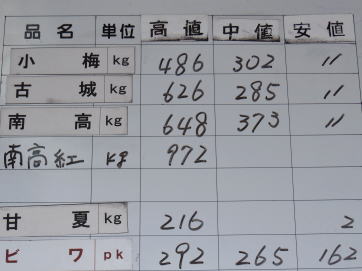 品名 単位 高値 中値 安値
小梅 kg 486 302 〃
古城 kg 626 285 〃
南高 kg 648 373 〃
南高紅 kg 972
甘夏 kg 216 2
ビワ pk 292 265 162